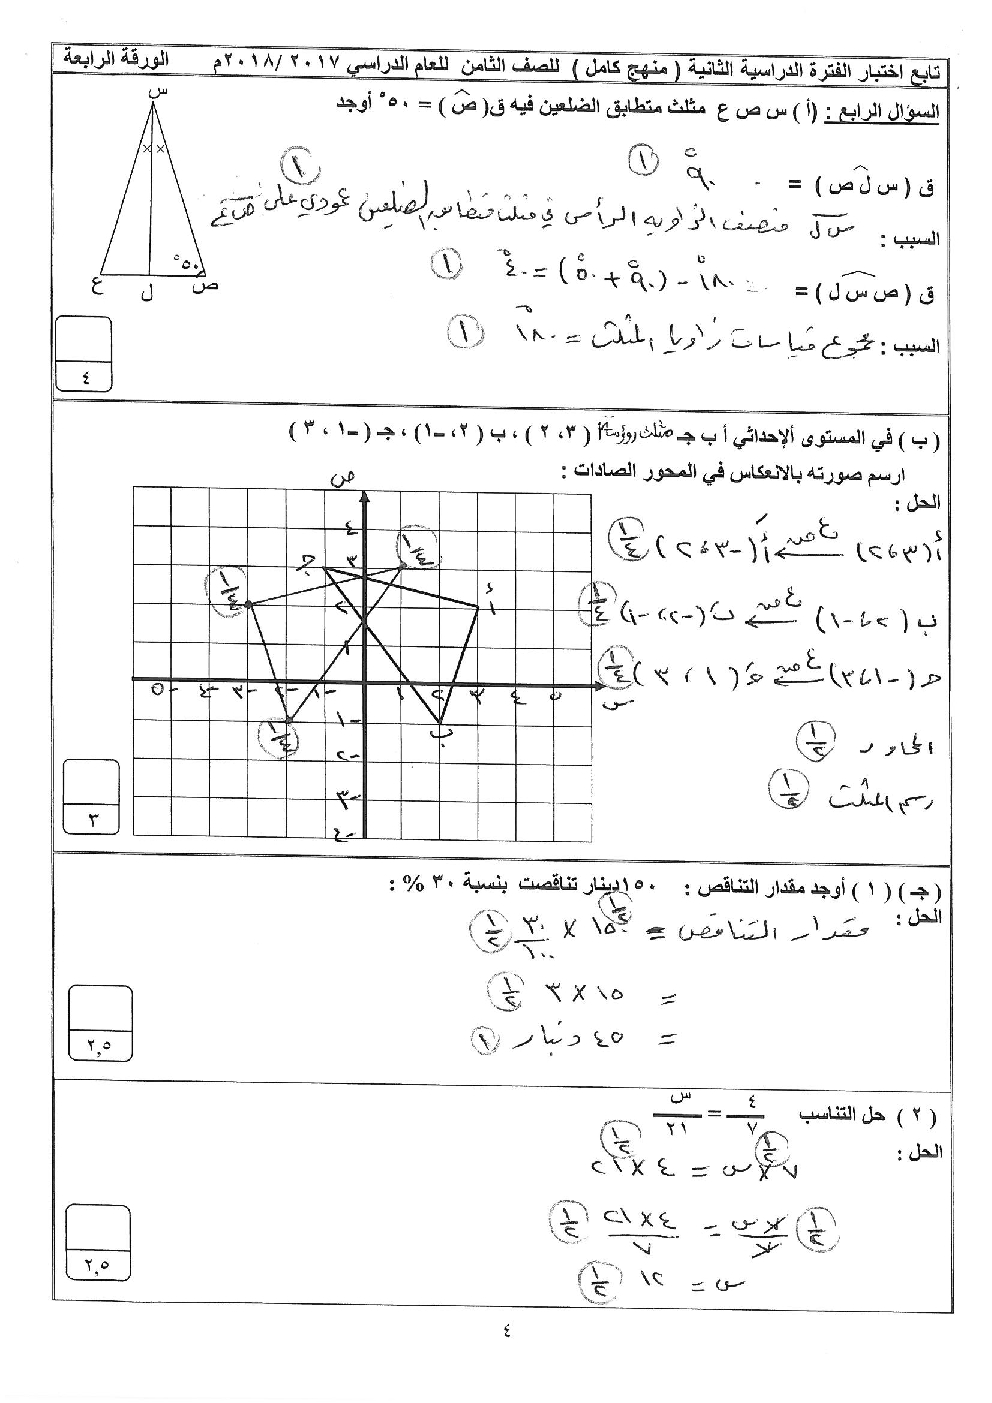 تابع اختبار الفترة الدراسية الثانية ( منهج كامل ) للصف الثامن للعام الدراسي ٢٠١٧ /٢٠١٨م الورقة الرابعة
السؤال الرابع : (أ ) س ص ع مثلث متطابق الضلعين فيه ق( ص ) = ٥٠° أوجد
س
ق ( س ل ص ) = ٩٠° ١
السبب : س ل منصف الزاوية الرأس في مثلث متطابق الضلعين عمودي على ص ع ١
٥٠°
ع ل ص
ق ( ص س ل ) = = ١٨٠° - (٩٠° + ٥٠°) = ٤٠° ١
السبب : مجموع قياسات زوايا المثلث = ١٨٠° ١
٤
( ب ) في المستوى الإحداثي أ ب جـ مثلث رؤوسه أ ( ٣ ، ٢ ) ، ب ( ٢ ، -١) ، جـ (-١ ، ٣ )
ارسم صورته بالانعكاس في المحور الصادات :
الحل :
أ (٣ ، ٢) ← ع ص أَ (-٣ ، ٢) ١/٤
ب (٢ ، -١) ← ع ص بَ (-٢ ، -١) ١/٤
جـ (-١ ، ٣) ← ع ص جـَ (١ ، ٣) ١/٤
المحاور ١/٢
رسم المثلث ١/٢
ص
٤
جـ ٣ ١/٤
١/٤ ٢ أ
١
-٥ -٤ -٣ -٢ -١ ١ ٢ ٣ ٤ ٥ س
١/٤ -١ ب
-٢
-٣
-٤
٣
( جـ ) ( ١ ) أوجد مقدار التناقص : ١٥٠ دينار تناقصت بنسبة ٣٠ % :
الحل :
مقدار التناقص = ١٥٠ × ٣٠/١٠٠ ١/٢ ١/٢
= ١٥ × ٣ ١/٢
= ٤٥ دينار ١
٢,٥
( ٢ ) حل التناسب ٤/٧ = س/٢١
الحل :
٧ × س = ٤ × ٢١ ١/٢ ١/٢
١/٢ ٧×س/٧ = ٤ × ٢١/٧ ١/٢
س = ١٢ ١/٢
٢,٥
٤